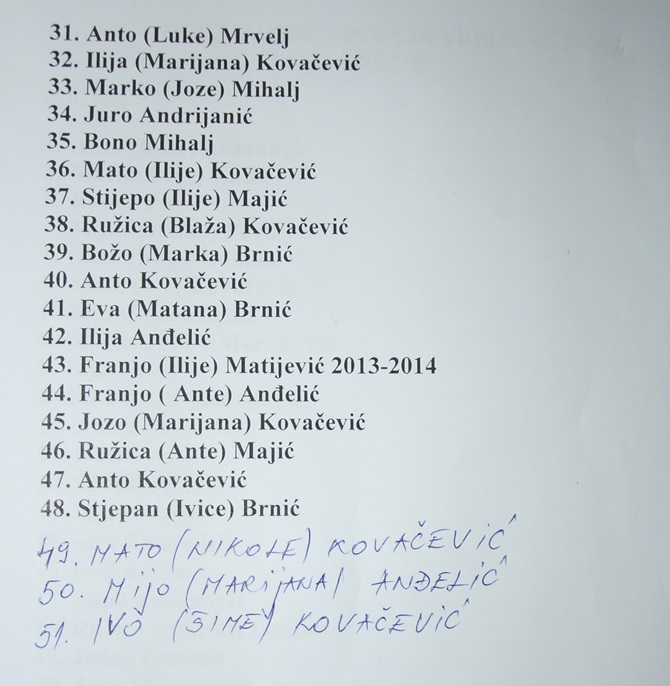 31. Anto (Luke) Mrvelj
32. Ilija (Marijana) Kovačević
33. Marko (Joze) Mihalj
34. Juro Andrijanić
35. Bono Mihalj
36. Mato (Ilije) Kovačević
37. Stijepo (Ilije) Majić
38. Ružica (Blaža) Kovačević
39. Božo (Marka) Brnić
40. Anto Kovačević
41. Eva (Matana) Brnić
42. Ilija Anđelić
43. Franjo (Ilije) Matijević 2013-2014
44. Franjo ( Ante) Anđelić
45. Jozo (Marijana) Kovačević
46. Ružica (Ante) Majić
47. Anto Kovačević
48. Stjepan (Ivice) Brnić
49. MATO (NIKOLE) KOVAČEVIĆ
50. MIJO (MARIJANA) ANĐELIĆ
51. IVO (ŠIME) KOVAČEVIĆ